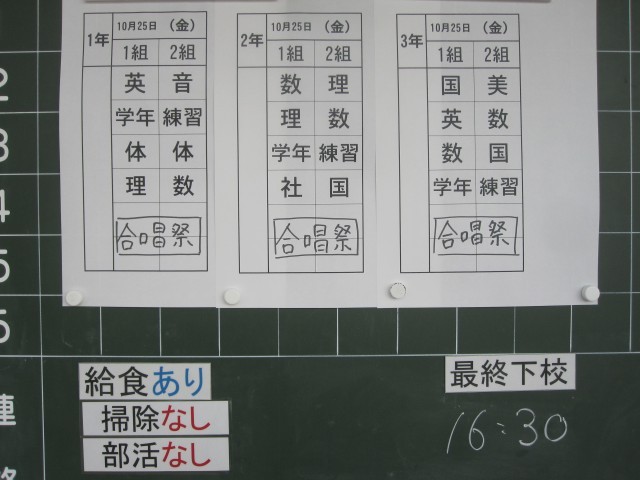 1年 10月25日 (金)
1組 2組
英 音
学年 練習
体 体
理 数
合唱祭
2年 10月25日 (金)
1組 2組
数 理
理 数
学年 練習
社 国
合唱祭
3年 10月25日 (金)
1組 2組
国 美
英 数
数 国
学年 練習
合唱祭
2
3
4
5
6
連
給食あり
掃除なし
部活なし
最終下校
16:30